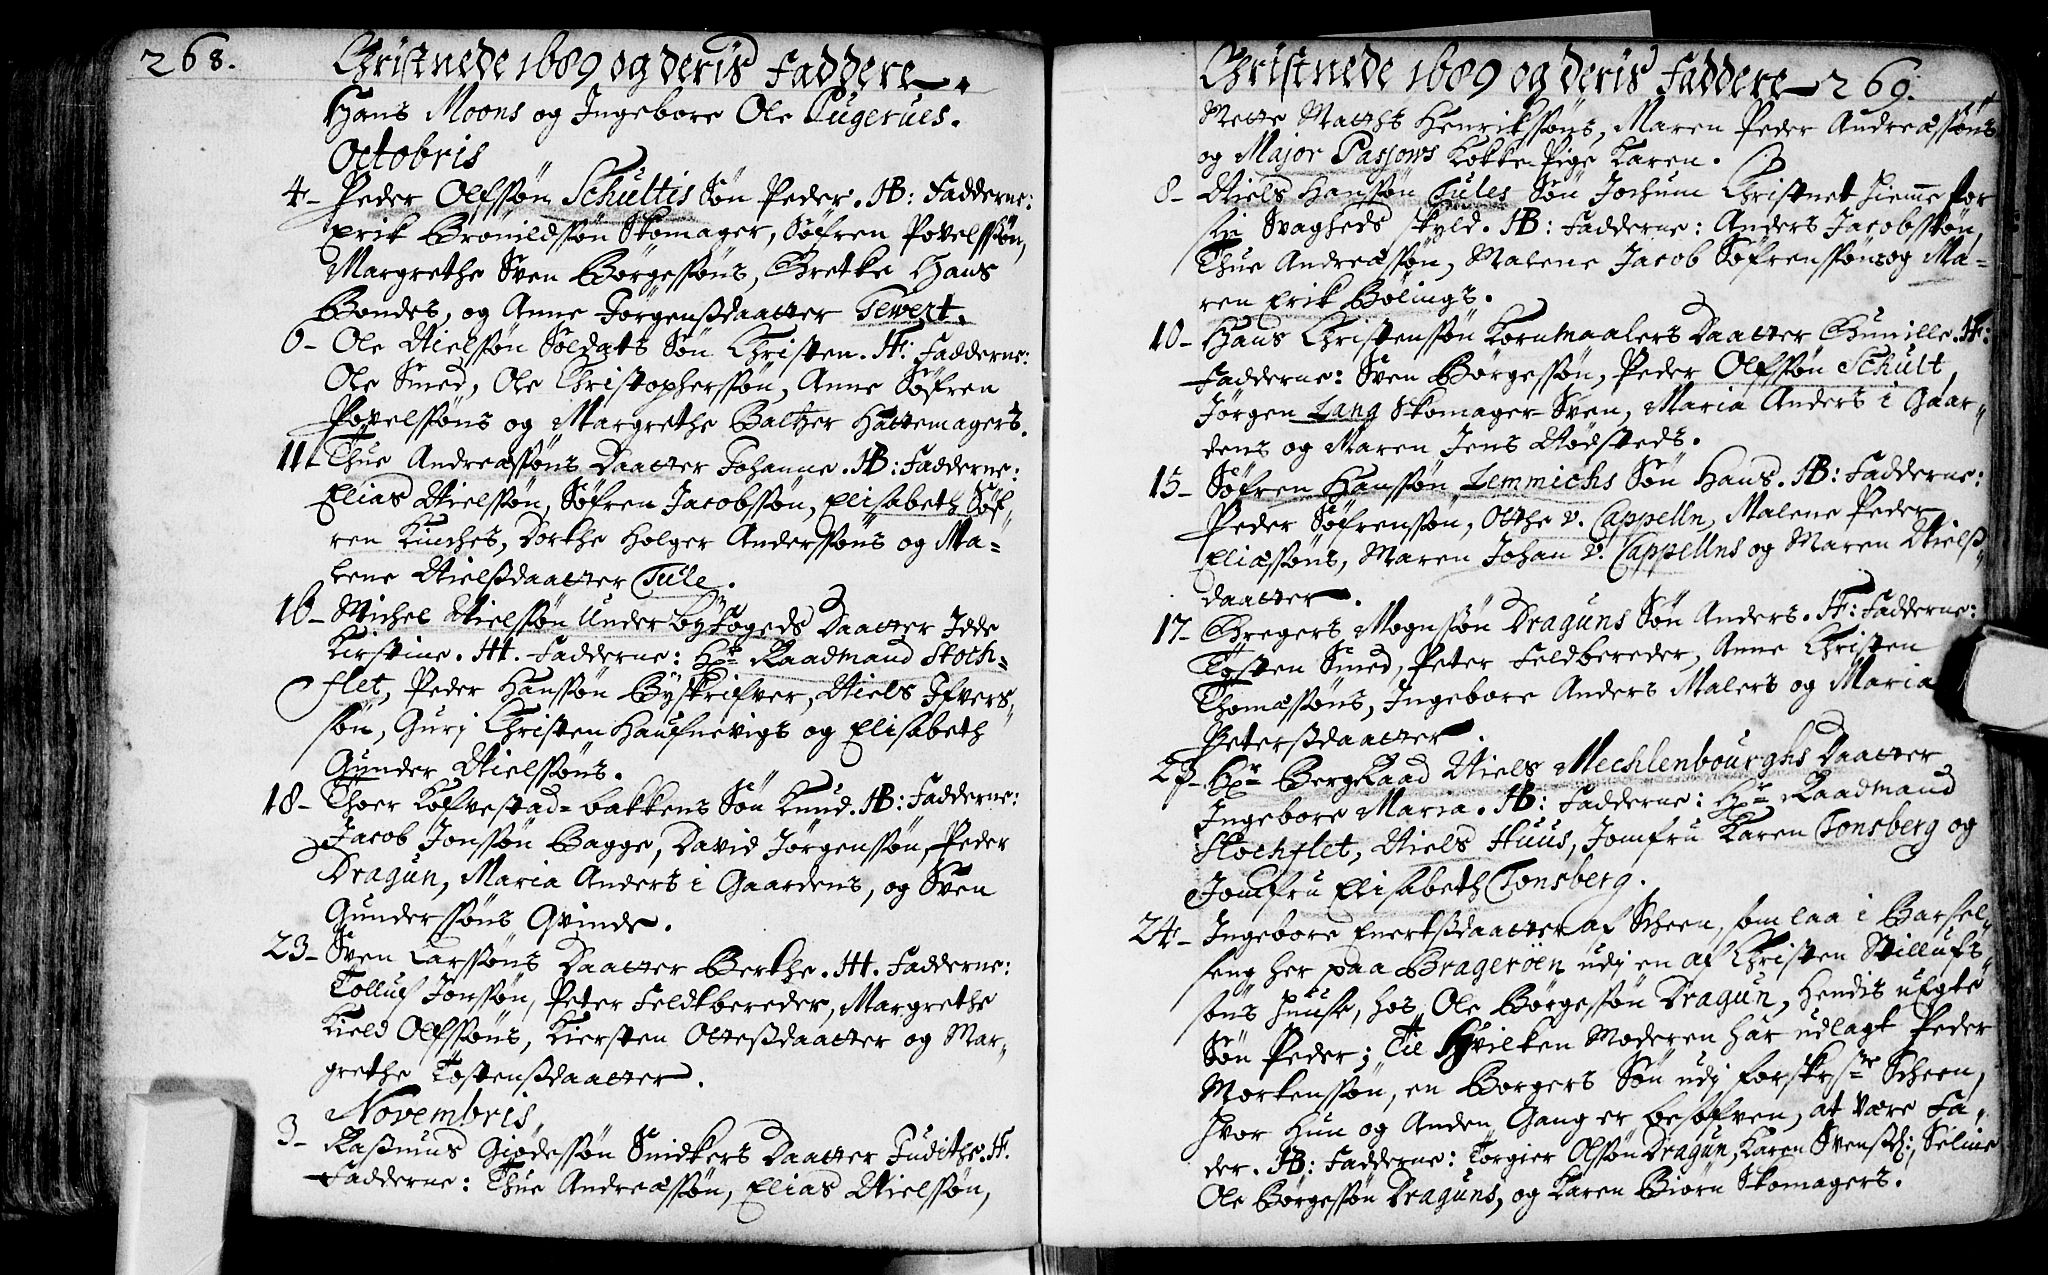 268. Christnede 1689 og deris Faddere.
Hans Moons og Ingebore Ole Pugerues.
Octobris
4- Peder Olssøn Schultis Søn Peder. HB: Fadderne:
Erik Brønildssøn Skomager, Søfren Povelssøn,
Margrethe Sven Børgessøns, Grethe Hans
Bondes, og Anne Jørgenssdaatter Tewert.
6- Ole Nielssøn Soldats Søn Christen. H: Fadderne:
Ole Smed, Ole Christopherssøn, Anne Søfren
Povelssøns og Margrethe Baltzer Hattemagers.
11- Thue Andreæssøns Daatter Johanne. HB: Fadderne:
Elias Nielssøn, Søfren Jacobssøn, Elisabeth Søf-
ren Kinches, Dorthe Holger Anderssøns og Ma-
lene Nielssdaatter Tule.
16- Michel Nielssøn Underbyfogeds Daatter Idde
Kirstine. HH. Fadderne: Hr Raadmand Stoch-
flet, Peder Hanssøn Byskrifver, Niels Ifvers-
søn, Gurj Christen Haufnevigs og Elisabeth
Gunder Nielssøns.
18- Thoer Kolfvestad-bakkens Søn Knud. HB: Fadderne:
Jacob Jonssøn Bagge, David Jørgenssøn, Peder
Dragun, Maria Anders i Gaardens, og Sven
Gunderssøns Qvinde.
23- Sven Larssøns Daatter Berthe. HH. Fadderne:
Tolluf Jonssøn, Peter Feldtbereder, Margrethe
Kield Olssøns, Kiersten Ottessdaatter og Mar-
grethe Tostenssdaatter.
Novembris
3- Rasmus Giødessøn Snidkers Daatter Judithe. H.
Fadderne: Thue Andreæssøn, Elias Nielssøn,
Christnede 1689 og deris Faddere 269.
Mette Matths Henrikssøns, Maren Peder Andreæssøns
og Major Passows Kokke Pige Karen.
8- Niels Hanssøn Tules Søn Jochum Christnet hieme for
sin Svagheds skyld. HB: Fadderne: Anders Jacobssøn,
Thue Andreæssøn, Malene Jacob Søfrenssøns og Ma-
ren Erik Bølings.
10- Hans Christenssøn Kornmaalers Daatter Gunille. H:
Fadderne: Sven Børgessøn, Peder Olssøn Schult,
Jørgen Lang Skomager-Sven, Maria Anders i Gaar-
dens og Maren Jens Nødsteds.
15- Søfren Hanssøn Lemmichs Søn Hans. HB: Fadderne:
Peder Søfrenssøn, Otthe v. Cappelln, Malene Peder
Eliæssøns, Maren Johan v. Cappellns og Maren Nielss-
daatter.
17- Gregers Mognssøn Draguns Søn Anders. H: Fadderne:
Tosten Smed, Peter Feldbereder, Anne Christen
Thomæssøns, Ingebore Anders Malers og Maria
Peterssdaatter.
23- Hr BergRaad Niels Mechlenbourghs Daatter
Ingebore Maria. HB: Fadderne: Hr Raadmand
Stochflet, Niels Huus, Jomfru Karen Tonsberg og
Jomfru Elisabeth Tonsberg.
24- Ingebore Evertssdaatter af Scheen, som laa i Barsel-
seng her paa Bragerøen udj en af Christen Stillufs-
søns Huuse, hos Ole Børgessøn Dragun, hendis uegte
Søn Peder; Til Hvilken Moderen har udlagt Peder
Mortenssøn, en Borgers Søn udj forskr.ne Scheen,
hvor Hun og Anden Gang er besofven, at være Fa-
der. HB: Fadderne: Torgier Olssøn Dragun, Karen Svenssd:, Seline
Ole Børgessøn Draguns, og Karen Biørn Skomagers.